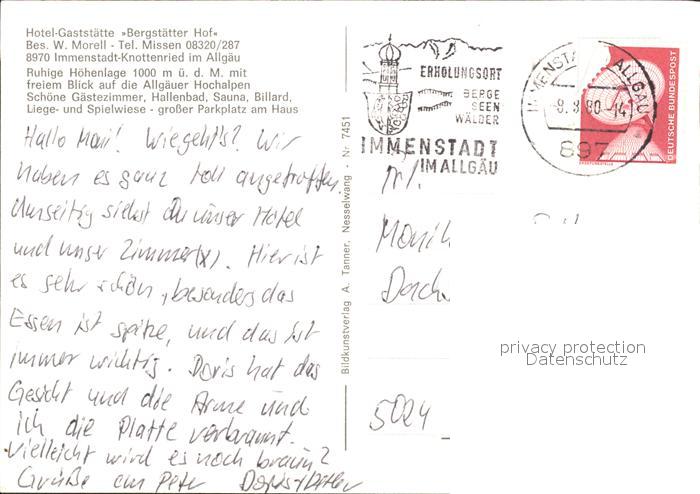 Hotel-Gaststätte »Bergstätter Hof«
Bes. W. Morell - Tel. Missen 08320/287
8970 Immenstadt-Knottenried im Allgäu
Ruhige Höhenlage 1000 m ü. d. M. mit
freiem Blick auf die Allgäuer Hochalpen
Schöne Gästezimmer, Hallenbad, Sauna, Billard,
Liege- und Spielwiese - großer Parkplatz am Haus
Hallo Moni! Wie geht's? Wir
haben es ganz toll angetroffen.
Umseitig siehst du unser Hotel
und unser Zimmer(x). Hier ist
es sehr schön, besonders das
Essen ist spitze, und das ist
immer wichtig. Doris hat das
Gesicht und die Arme und
ich die Platte verbrannt.
Vielleicht wird es noch braun?
Grüße an Peter Doris+
Bildkunstverlag A. Tanner, Nesselwang - Nr 7451
ERHOLUNGSORT
BERGE
SEEN
WÄLDER
IMMENSTADT
IM ALLGÄU
IMMENSTA ALLGÄU
-8.3.80-14
897
DEUTSCHE BUNDESPOST
Frl.
Moni
Dach
5024
privacy protection
Datenschutz